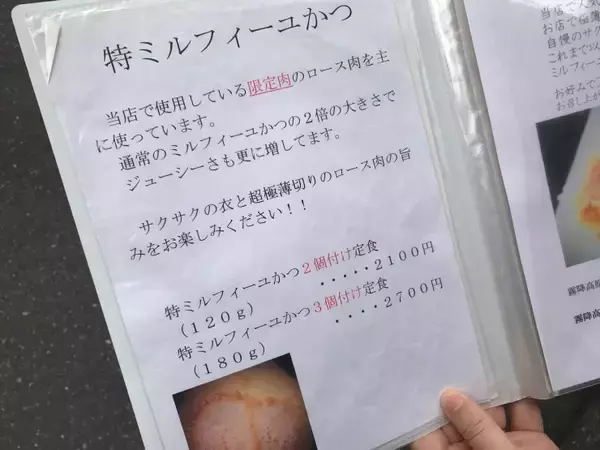 特ミルフィーユかつ
当店で使用している限定肉のロース肉を主
に使っています。
通常のミルフィーユかつの2倍の大きさで
ジューシーさも更に増してます。
サクサクの衣と超極薄切りのロース肉の旨
みをお楽しみください!!
特ミルフィーユかつ2個付け定食
(120g) ・・・・・2100円
特ミルフィーユかつ3個付け定食
(180g) ・・・・2700円
当店で人気
お店で極薄
自慢のサク
ミルフィーユ
お好みで
お召し上が
霧降高原
霧降高原